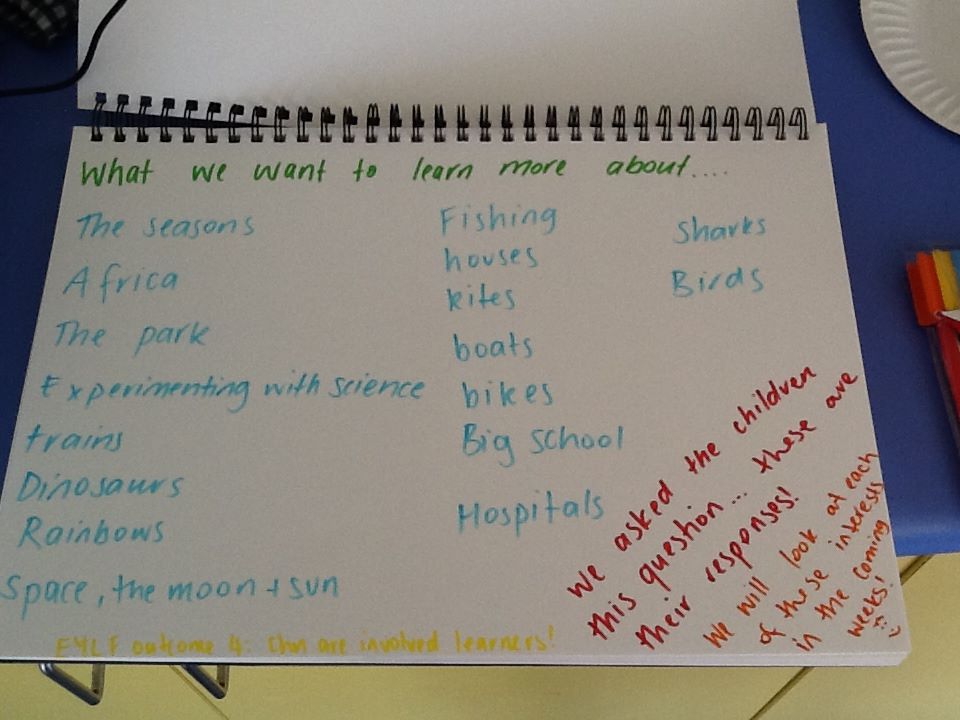 What we want to learn more about....
The seasons
Africa
The park
Experimenting with science
trains
Dinosaurs
Rainbows
Space, the moon + sun
Fishing
houses
kites
boats
bikes
Big school
Hospitals
Sharks
Birds
We asked the children
this question... these are
their responses!
We will look at each
of these interests
in the coming
weeks!
EYLF outcome 4: Chn are involved learners!